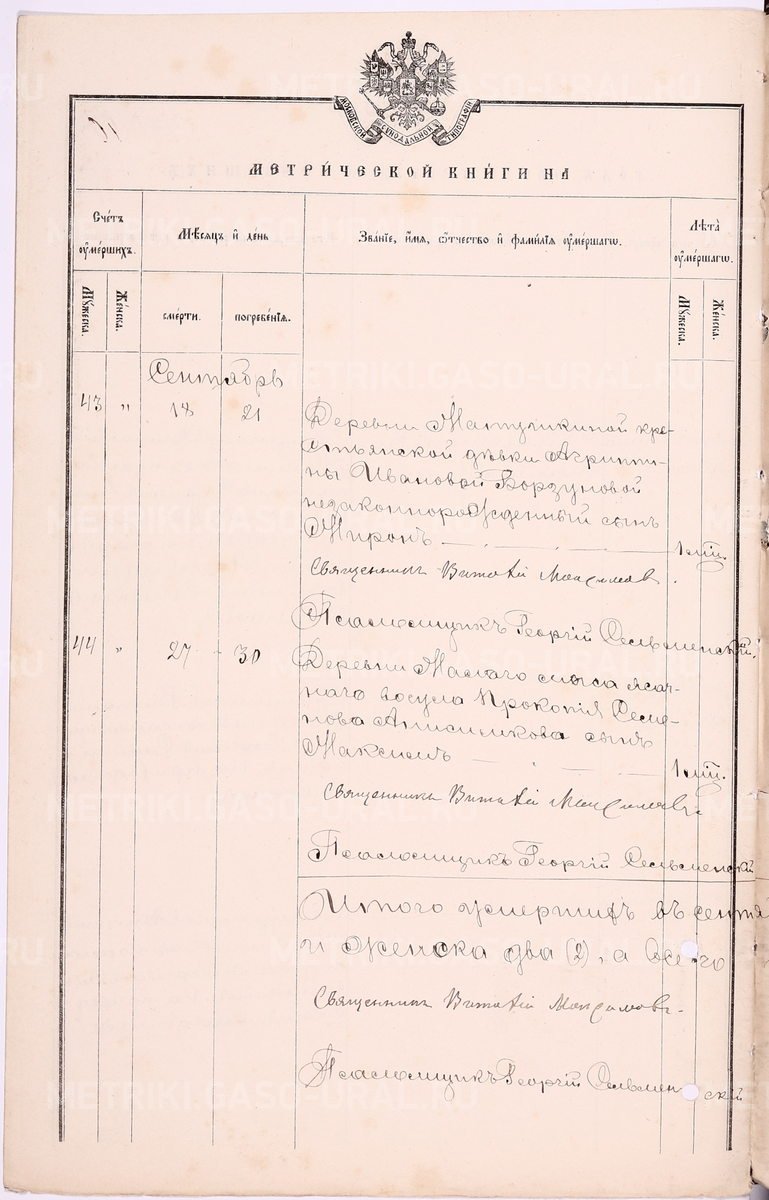 МОСКОВСКОЙ СѴНОДАЛЬНОЙ ТИПОГРАФІИ
МЕТРИ́ЧЕСКОЙ КНИ́ГИ НА
Сче́тъ ᲂу҆ме́ршихъ.
Мѣ́сяцъ и҆ де́нь
Зва́нїе, и҆́мя, ѻ҆́тчество и҆ фамилїя ᲂу҆ме́ршагѡ.
Лѣ́та ᲂу҆ме́ршагѡ.
Мꙋ́жеска.
Же́нска.
сме́рти.
погребе́нїѧ.
Мꙋ́жеска.
Же́нска.
Сентябрь
43 " 18 21
Деревни Матушкиной кре-
стьянской дѣвки Агриппи-
ны Ивановой Борзуновой
незаконнорожденный сынъ
Миронъ — 1 мѣ.
Священникъ Виталій Максимовъ.
Псаломщикъ Георгій Сельменскій.
44 " 27 30
Деревни Малаго мыса ясач-
наго Прокопія Семе-
нова Анисимкова сынъ
Максимъ — 1 мѣ.
Священникъ Виталій Максимовъ.
Псаломщикъ Георгій Сельменскій
Итого умершихъ въ сентя
и женска два (2), а всего
Священникъ Виталій Максимовъ.
Псаломщикъ Георгій Сельменскій
METRIKI.GASO-URAL.RU